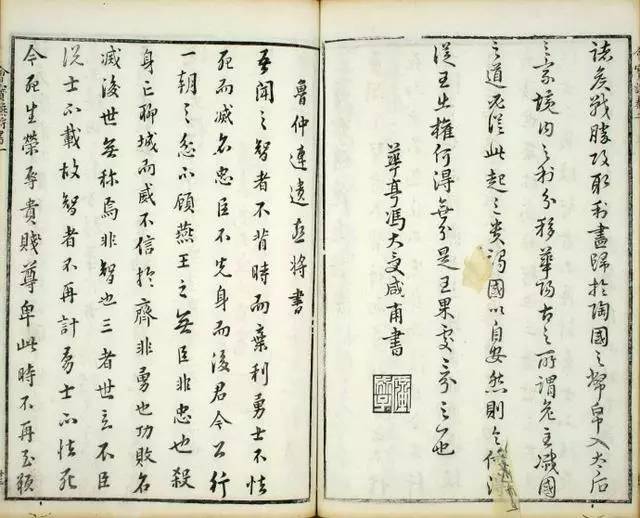 諸矦戰勝攻取利盡歸於陶國之幣帛入太后
之家境内之利分移華陽古之所謂危主滅國
之道必從此起三貴竭國以自安然則令何得
從王出權何得毋分是王果處三分之一也
華亭馮大受咸甫書
魯仲連遺燕將書
吾聞之智者不背時而棄利勇士不怯
死而滅名忠臣不先身而後君今公行
一朝之忿不顧燕王之無臣非忠也殺
身亡聊城而威不信於齊非勇也功敗名
滅後世無稱焉非智也三者世主不臣
說士不載故智者不再計勇士不怯死
今死生榮辱貴賤尊卑此時不再至願